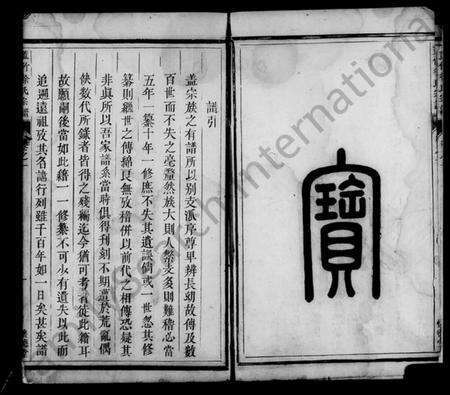 寶
譜引
蓋宗族之有譜所以别支派序尊卑辨長幼故傳及數
百世而不失之毫釐然族大則人繁支多則難稽必當
五年一纂十年一修庶不失其遺誤倘或一世忽其修
纂則繼世之傳綿艮無攷稽併以前代之相傳恐疑其
非與所以吾家譜系當時俱得刊刻不期遭於荒亂偶
佚數代所錄者皆得之殘編迄今猶可考者從此籍耳
故願嗣後當如此籍一一修纂不可少有遺失以此而
追遡遠祖攷其名諱行列雖千百年如一日矣甚矣譜